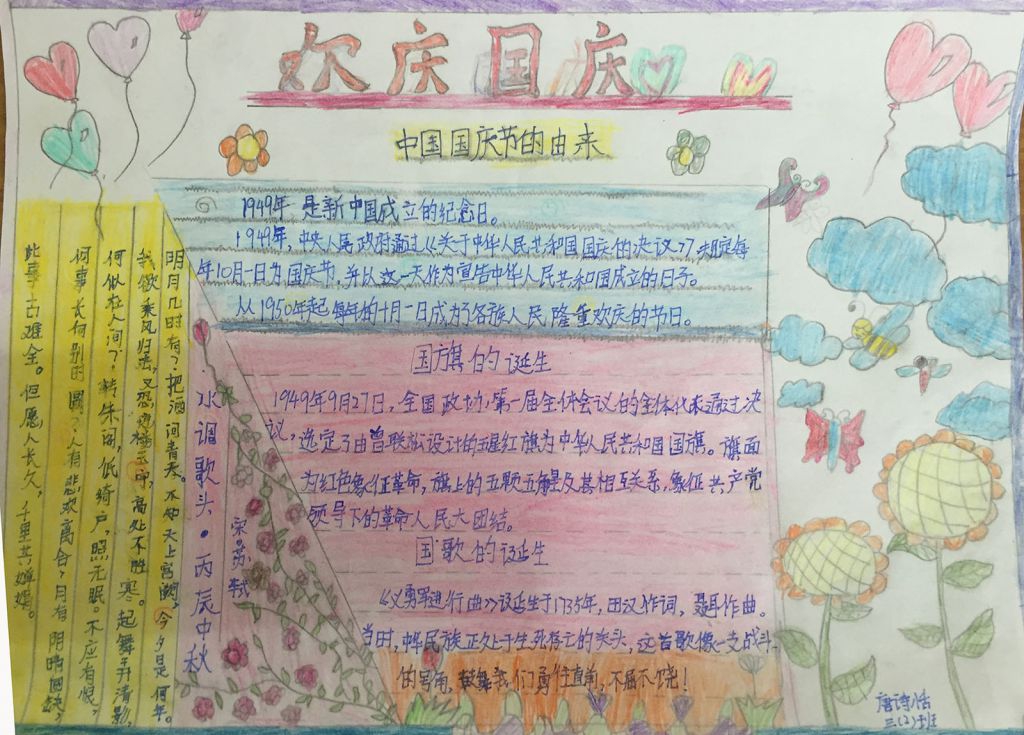 欢庆国庆
中国国庆节的由来
1949年 是新中国成立的纪念日。
1949年,中央人民政府通过《关于中华人民共和国国庆的决议》了,规定每
年10月一日为国庆节,并以这一天作为宣告中华人民共和国成立的日子。
从1950年起每年的十月一日成为了各族人民隆重欢庆的节日。
国旗的诞生
1949年9月27日,全国政协第一届全体会议的全体代表通过决
议,选定了由曾联松设计的五星红旗为中华人民共和国国旗。旗面
为红色象征革命,旗上的五颗五角星及其相互关系,象征共产党
领导下的革命人民大团结。
国歌的诞生
《义勇军进行曲》诞生于1735年,田汉作词,聂耳作曲。
当时,中华民族正处于生死存亡的关头,这首歌像一支战斗
的号角,鼓舞我们勇往直前,不屈不饶!
水调歌头·丙辰中秋
宋·苏轼
明月几时有?把酒问青天。不知天上宫阙,今夕是何年。
我欲乘风归去,又恐琼楼玉宇,高处不胜寒。起舞弄清影,
何似在人间?转朱阁,低绮户,照无眠。不应有恨,
何事长向别时圆?人有悲欢离合,月有阴晴圆缺,
此事古难全。但愿人长久,千里共婵娟。
唐诗恬
三(2)班